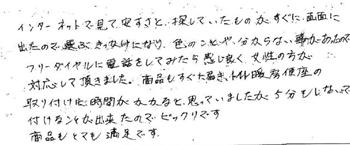 インターネットで見て安すさと、探していたものが、すぐに、画面に
出たので選ぶきっかけになり、色のことや、分からない事があったので
フリーダイヤルに電話をしてみたら感じ良く、女性の方が
対応して頂きました。商品もすぐ届き、トイレ暖房便座の
取り付けに時間がかかると、思っていましたが、5分もしないで
付けることが出来たのでビックリです
商品もとても満足です。